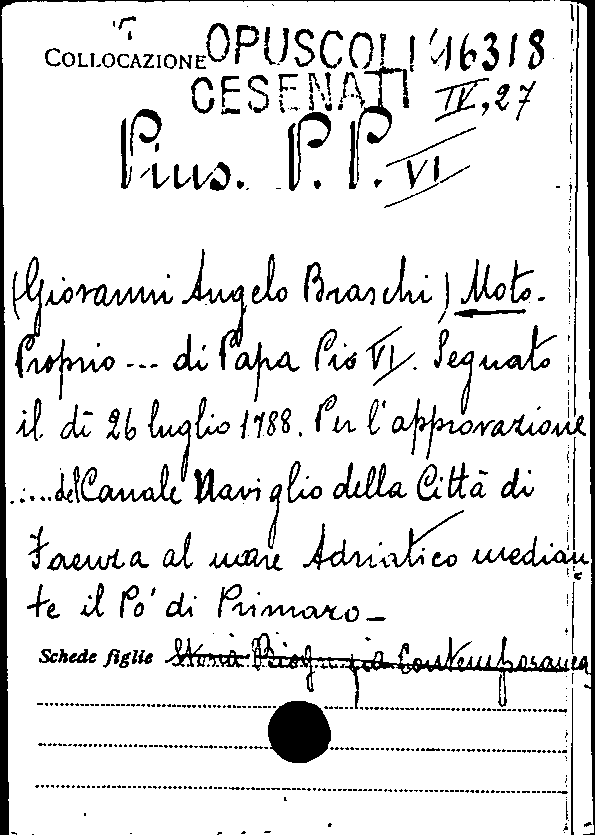 COLLOCAZIONE OPUSCOLI 16318
CESENATI IV, 27
Pius. P. P. VI
(Giovanni Angelo Braschi) Moto-
Proprio --- di Papa Pio VI. Segnato
il dì 26 luglio 1788. Per l'approvazione
..... del Canale Naviglio della Città di
Faenza al mare Adriatico median
te il Pò di Primaro -
Schede figlie Storia Biografia Contemporanea